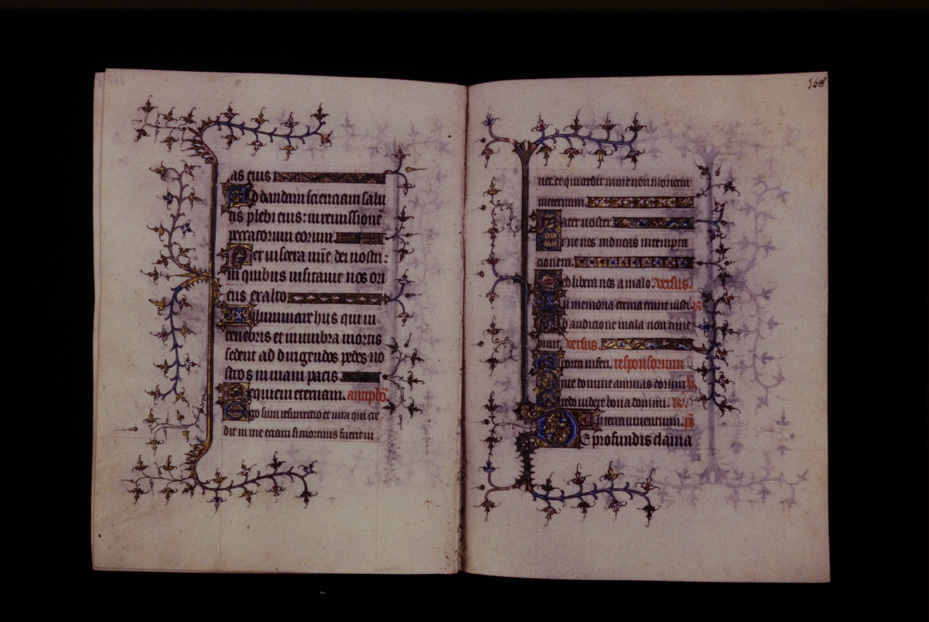 as eius
Ad dandam scienciam salu
tis plebi eius: in remissione
peccatorum eorum.
Per viscera mie dei nostri:
in quibus visitavit nos ori
ens ex alto
Illuminare hiis qui in
tenebris et in umbra mortis
sedent ad dirigendos pedes no
stros in viam pacis.
Requiem eternam. antiph̄o
Ego sum resurrectio et vita qui cre
dit in me etiam si mortuus fuerit vi
168
vet. et qui credit in me non morietur
in eternum.
Pater noster.
Et ne nos inducas in tempta
cionem.
Sed libera nos a malo. versus.
In memoria eterna erunt iusti. R̷
Ab audicione mala non time
bunt. versus.
A porta inferi. responsorium
Erue domine animas eorum
Credo videre bona domini.
In terra viventium. ps̄
De profundis clama